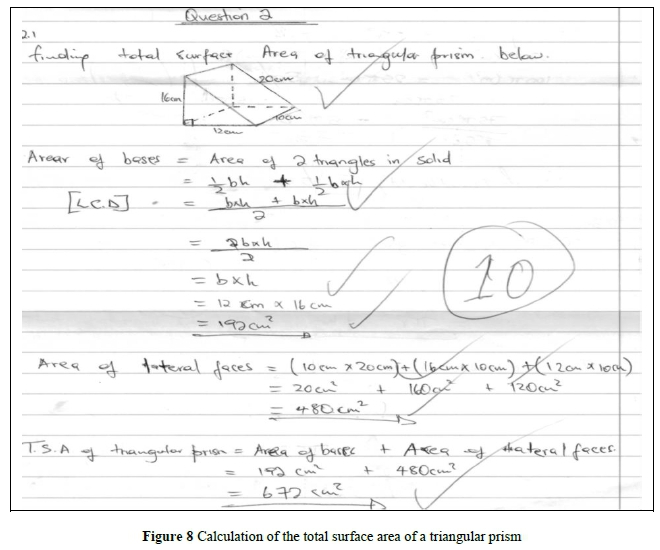 Question 2
2.1
finding total surface Area of triangular prism below.
20cm
16cm
10cm
12cm
Arear of bases = Area of 2 triangles in solid
= 1/2 bh + 1/2 bxh
[LCD] = bxh + bxh / 2
= 2bxh / 2
= bxh
= 12 cm x 16 cm
= 192cm²
10
Area of lateral faces = (10cm x 20cm) + (16cm x 10cm) + (12cm x 10cm)
= 20cm² + 160cm² + 120cm²
= 480cm²
T.S.A of triangular prism = Area of bases + Area of lateral faces.
= 192 cm² + 480cm²
= 672 cm²
Figure 8 Calculation of the total surface area of a triangular prism